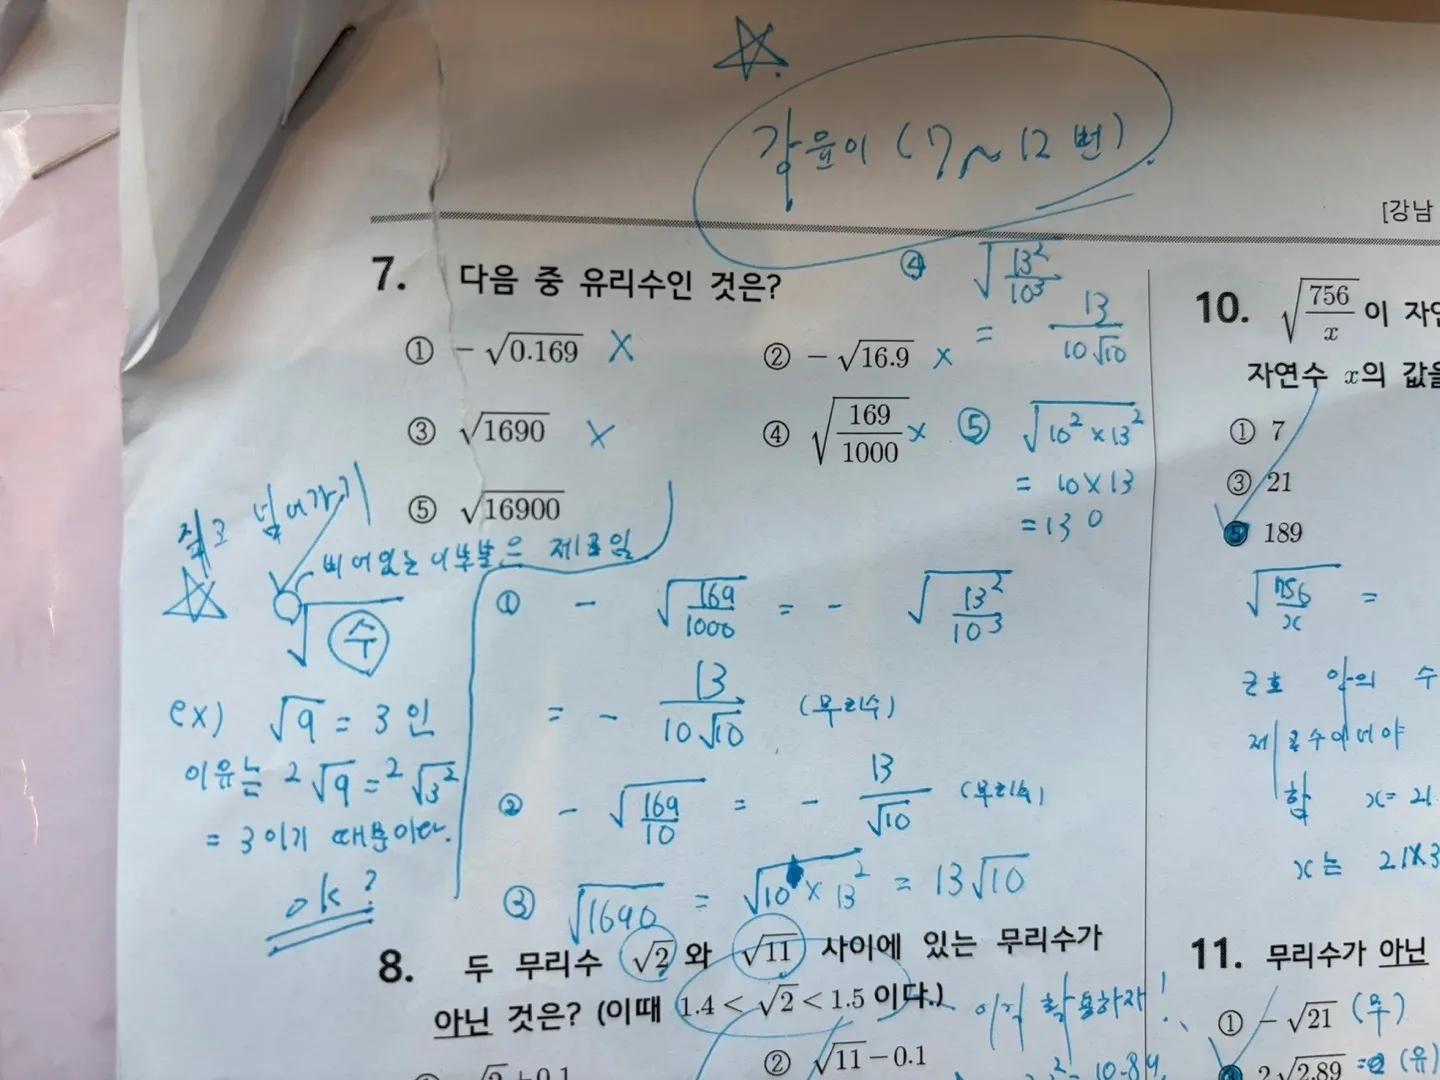 강윤이 (7~12번)
[강남
7. 다음 중 유리수인 것은?
① -√0.169 X
② -√16.9 x
③ √1690 x
④ √(169/1000) x
⑤ √16900
④ √(13²/10³)
= 13/(10√10)
⑤ √(10²×13²)
= 10×13
= 130
짚고 넘어가기
비어있는 이부분은 제곱일
√수
ex) √9 = 3인
이유는 ²√9 = ²√3²
= 3이기 때문이다.
ok?
① - √(169/1000) = - √(13²/10³)
= - 13/(10√10) (무리수)
② - √(169/10) = - 13/√10 (무리수)
③ √1690 = √(10×13²) = 13√10
8. 두 무리수 √2와 √11 사이에 있는 무리수가
아닌 것은? (이때 1.4 < √2 < 1.5이다.)
이걸 활용하자!
② √11-0.1
10. √(756/x)이 자연
자연수 x의 값을
① 7
③ 21
⑤ 189
√(756/x) =
근호 안의 수
제곱수이어야
함 x=21
x는 21×3
11. 무리수가 아닌
① -√21 (무)
2√2.89 (유)